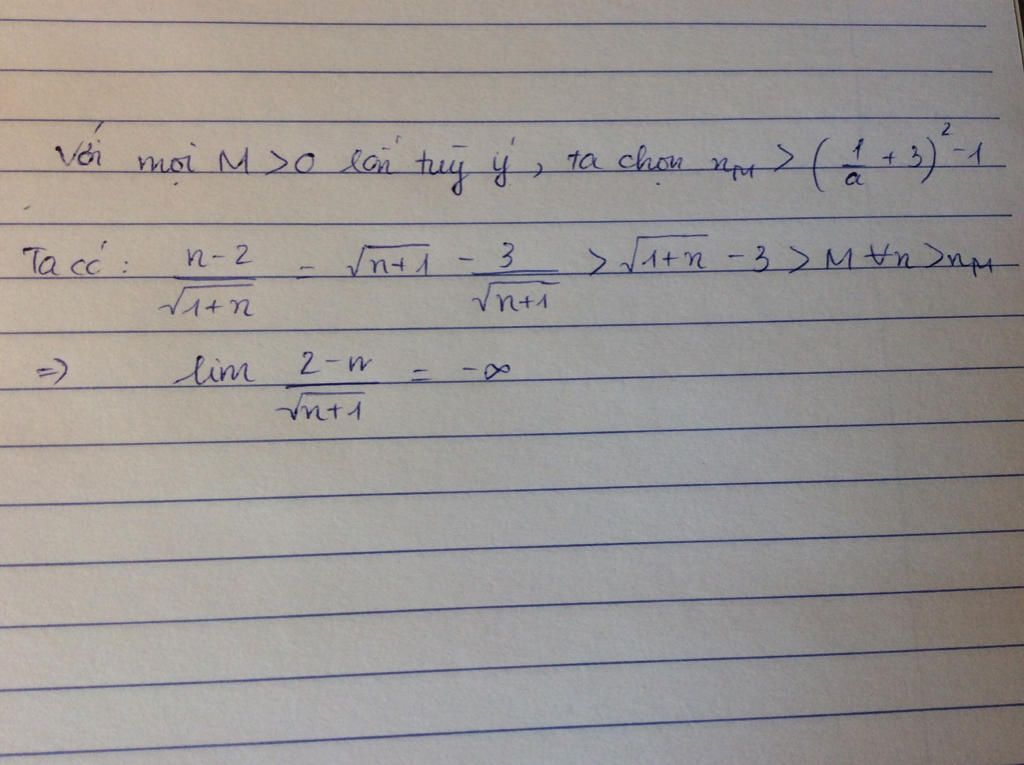 Với mọi M > 0 lớn tuỳ ý, ta chọn n_M > (1/a + 3)² - 1
Ta có: (n-2)/√(1+n) = √(n+1) - 3/√(n+1) > √(1+n) - 3 > M ∀n > n_M
=> lim (2-n)/√(n+1) = -∞